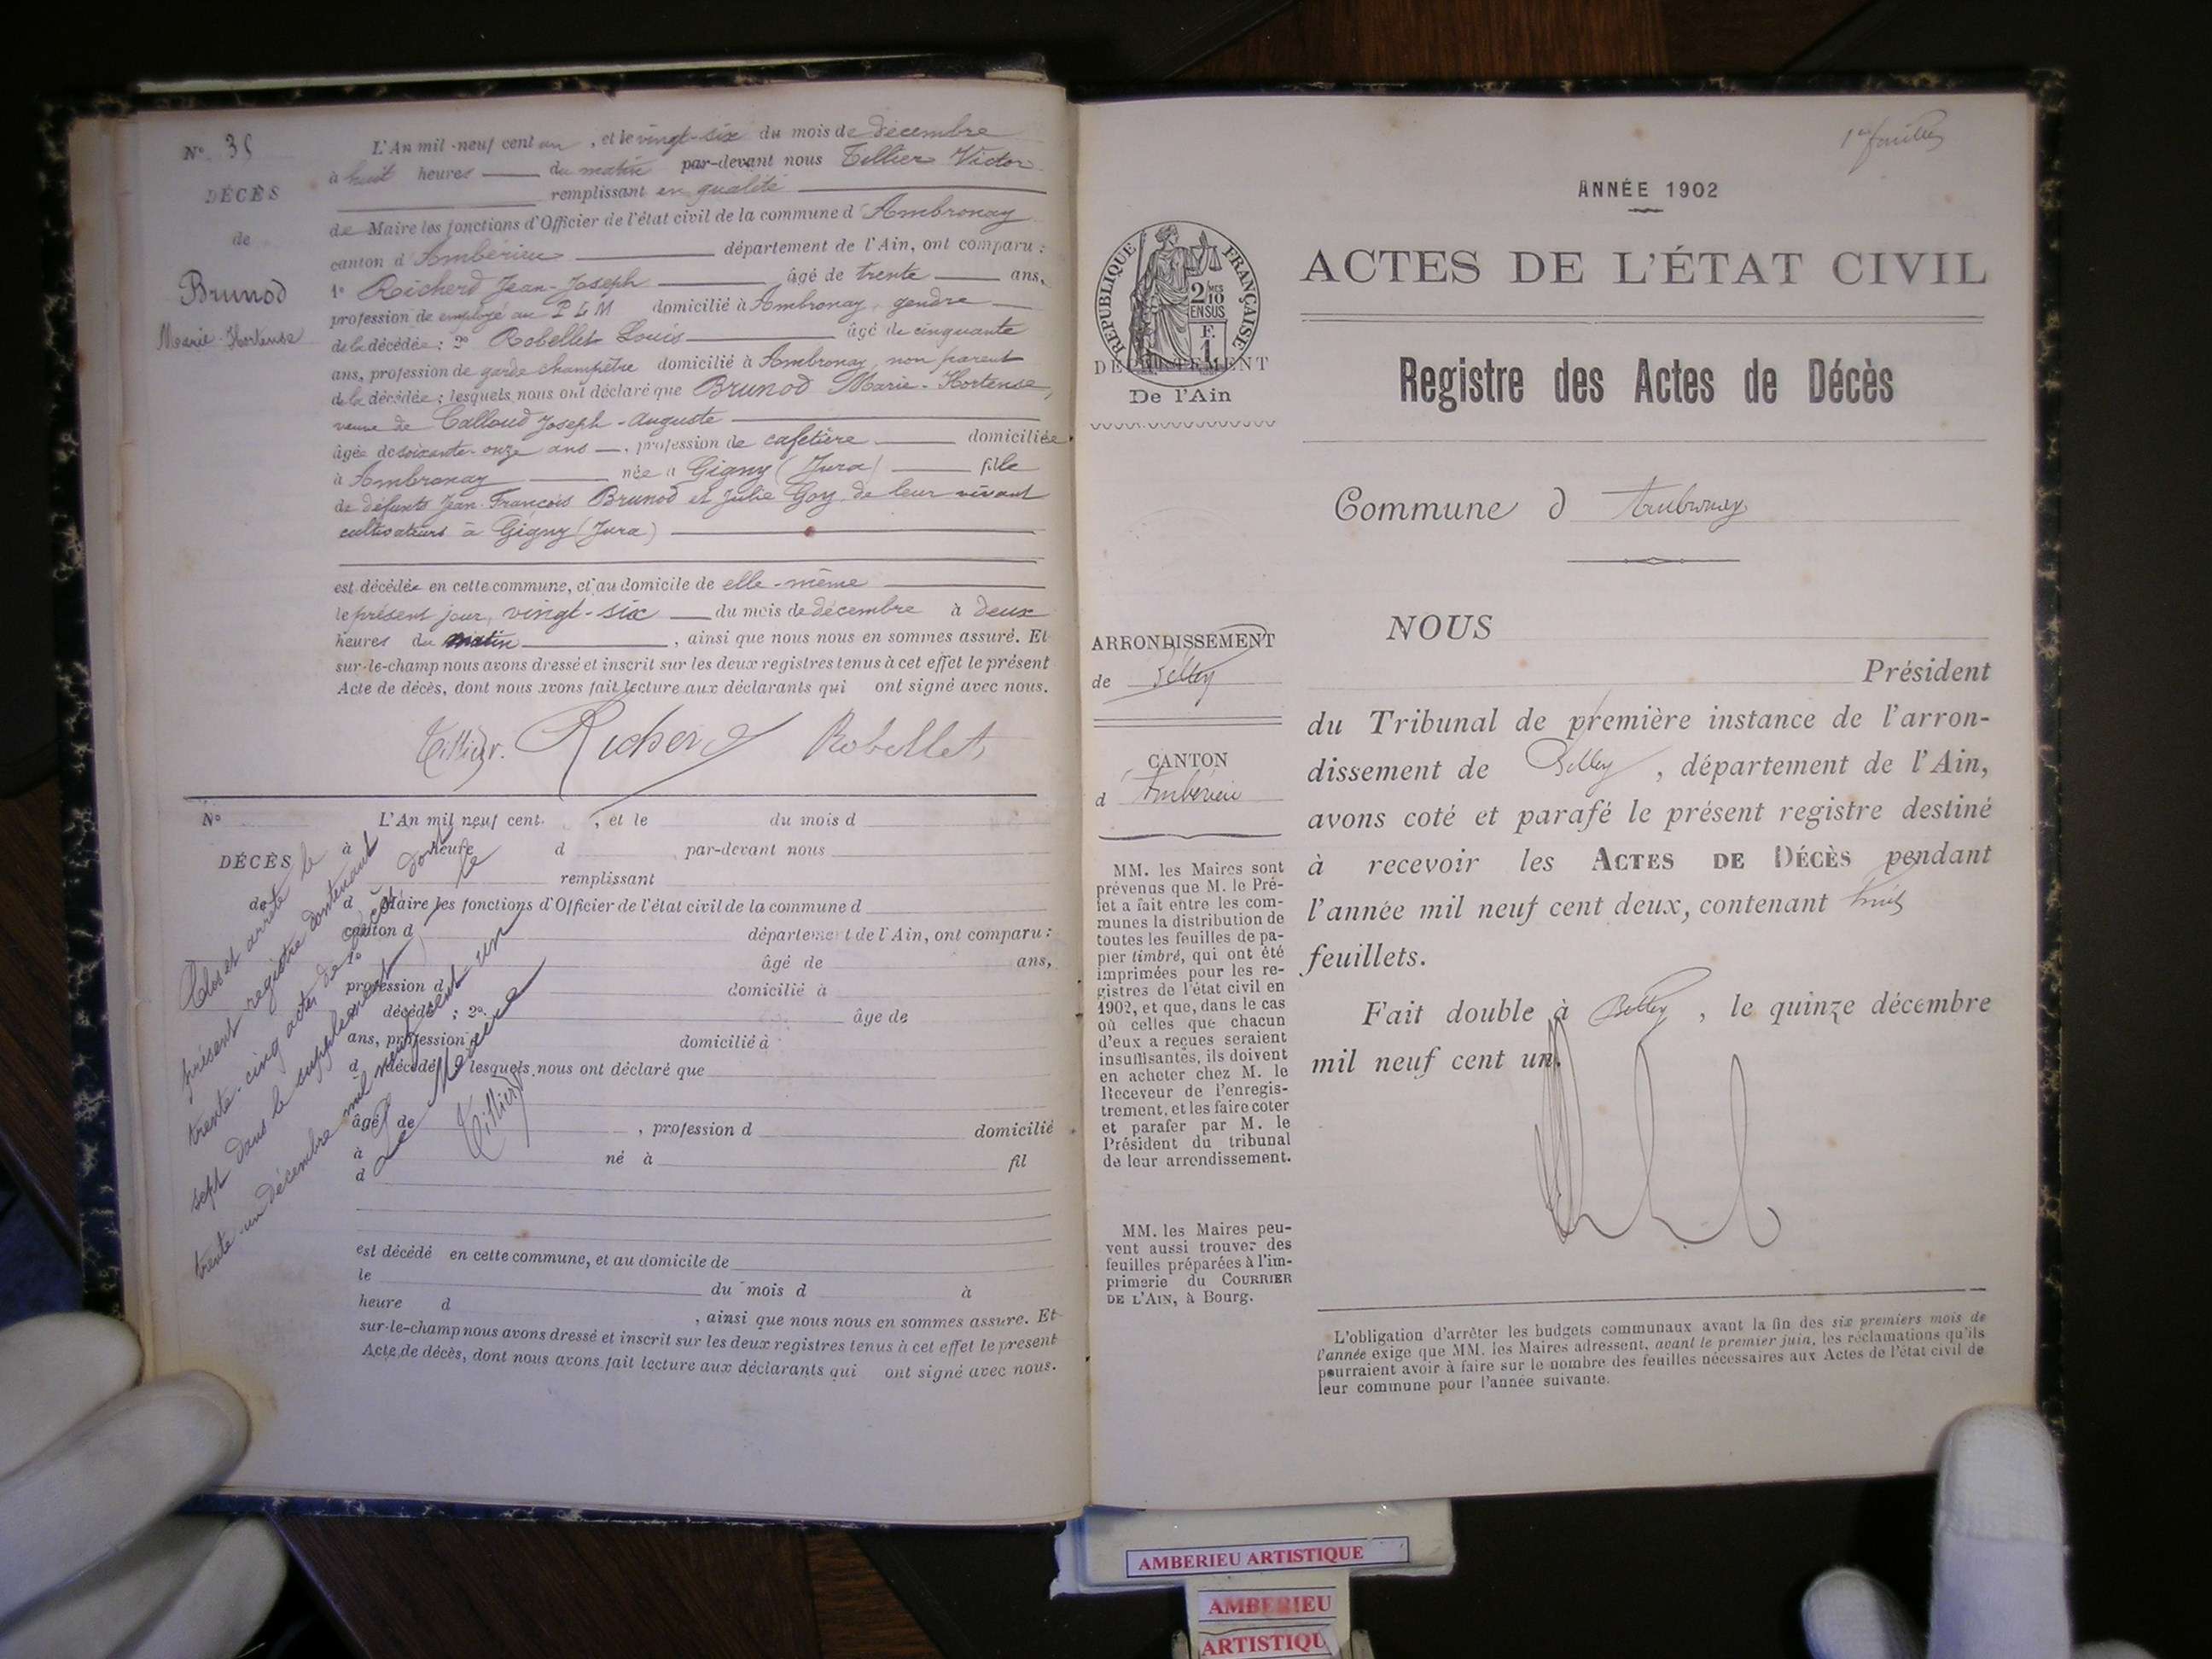 N° 35
DÉCÈS
de
Brunod
Marie-Hortense
L'An mil-neuf cent un, et le vingt-six du mois de décembre
à huit heures du matin par-devant nous Tillier Victor
remplissant en qualité
de Maire les fonctions d'Officier de l'état civil de la commune d'Ambronay
canton d'Ambérieu département de l'Ain, ont comparu :
1° Richerd Jean-Joseph âgé de trente ans,
profession de employé au P L M domicilié à Ambronay, gendre
de la décédée ; 2° Robellet Louis âgé de cinquante
ans, profession de garde champêtre domicilié à Ambronay, non parent
de la décédée ; lesquels nous ont déclaré que Brunod Marie-Hortense,
veuve de Calloud Joseph-Auguste
âgée de soixante-onze ans, profession de cafetière domiciliée
à Ambronay née à Gigny (Jura) fille
de défunts Jean-François Brunod et Julie Goy, de leur vivant
cultivateurs à Gigny (Jura)
est décédée en cette commune, et au domicile de elle-même
le présent jour, vingt-six du mois de décembre à deux
heures du matin, ainsi que nous nous en sommes assuré. Et
sur-le-champ nous avons dressé et inscrit sur les deux registres tenus à cet effet le présent
Acte de décès, dont nous avons fait lecture aux déclarants qui ont signé avec nous.
Tillier. Richerd Robellet
N°
DÉCÈS
de
L'An mil neuf cent , et le du mois d
à heure d par-devant nous
remplissant
d Maire les fonctions d'Officier de l'état civil de la commune d
canton d département de l'Ain, ont comparu :
1° âgé de ans,
profession d domicilié à
décédé ; 2° âge de
ans, profession d domicilié à
d décédé lesquels nous ont déclaré que
âgé de , profession d domicilié
à né à fil
d
est décédé en cette commune, et au domicile de
le du mois d à
heure d , ainsi que nous nous en sommes assure. Et
sur-le-champ nous avons dressé et inscrit sur les deux registres tenus à cet effet le present
Acte de décès, dont nous avons fait lecture aux déclarants qui ont signé avec nous.
Clos et arrêté le
présent registre contenant
trente-cinq actes de décès dont
sept dans le supplément, le
trente-un décembre mil neuf cent un
Le Maire
Tillier
ANNÉE 1902
ACTES DE L'ÉTAT CIVIL
Registre des Actes de Décès
Commune d Ambronay
RÉPUBLIQUE FRANÇAISE
2/10 MES
EN SUS
F.
1
DÉPARTEMENT
De l'Ain
ARRONDISSEMENT
de Belley
CANTON
d'Ambérieu
MM. les Maires sont
prévenus que M. le Pré-
fet a fait entre les com-
munes la distribution de
toutes les feuilles de pa-
pier timbré, qui ont été
imprimées pour les re-
gistres de l'état civil en
1902, et que, dans le cas
où celles que chacun
d'eux a reçues seraient
insuffisantes, ils doivent
en acheter chez M. le
Receveur de l'enregis-
trement, et les faire coter
et parafer par M. le
Président du tribunal
de leur arrondissement.
MM. les Maires peu-
vent aussi trouver des
feuilles préparées à l'im-
primerie du COURRIER
DE L'AIN, à Bourg.
NOUS
Président
du Tribunal de première instance de l'arron-
dissement de Belley, département de l'Ain,
avons coté et parafé le présent registre destiné
à recevoir les ACTES DE DÉCÈS pendant
l'année mil neuf cent deux, contenant huit
feuillets.
Fait double à Belley, le quinze décembre
mil neuf cent un.
L'obligation d'arrêter les budgets communaux avant la fin des six premiers mois de
l'année exige que MM. les Maires adressent, avant le premier juin, les réclamations qu'ils
pourraient avoir à faire sur le nombre des feuilles nécessaires aux Actes de l'état civil de
leur commune pour l'année suivante.
AMBERIEU ARTISTIQUE
AMBERIEU
ARTISTIQU